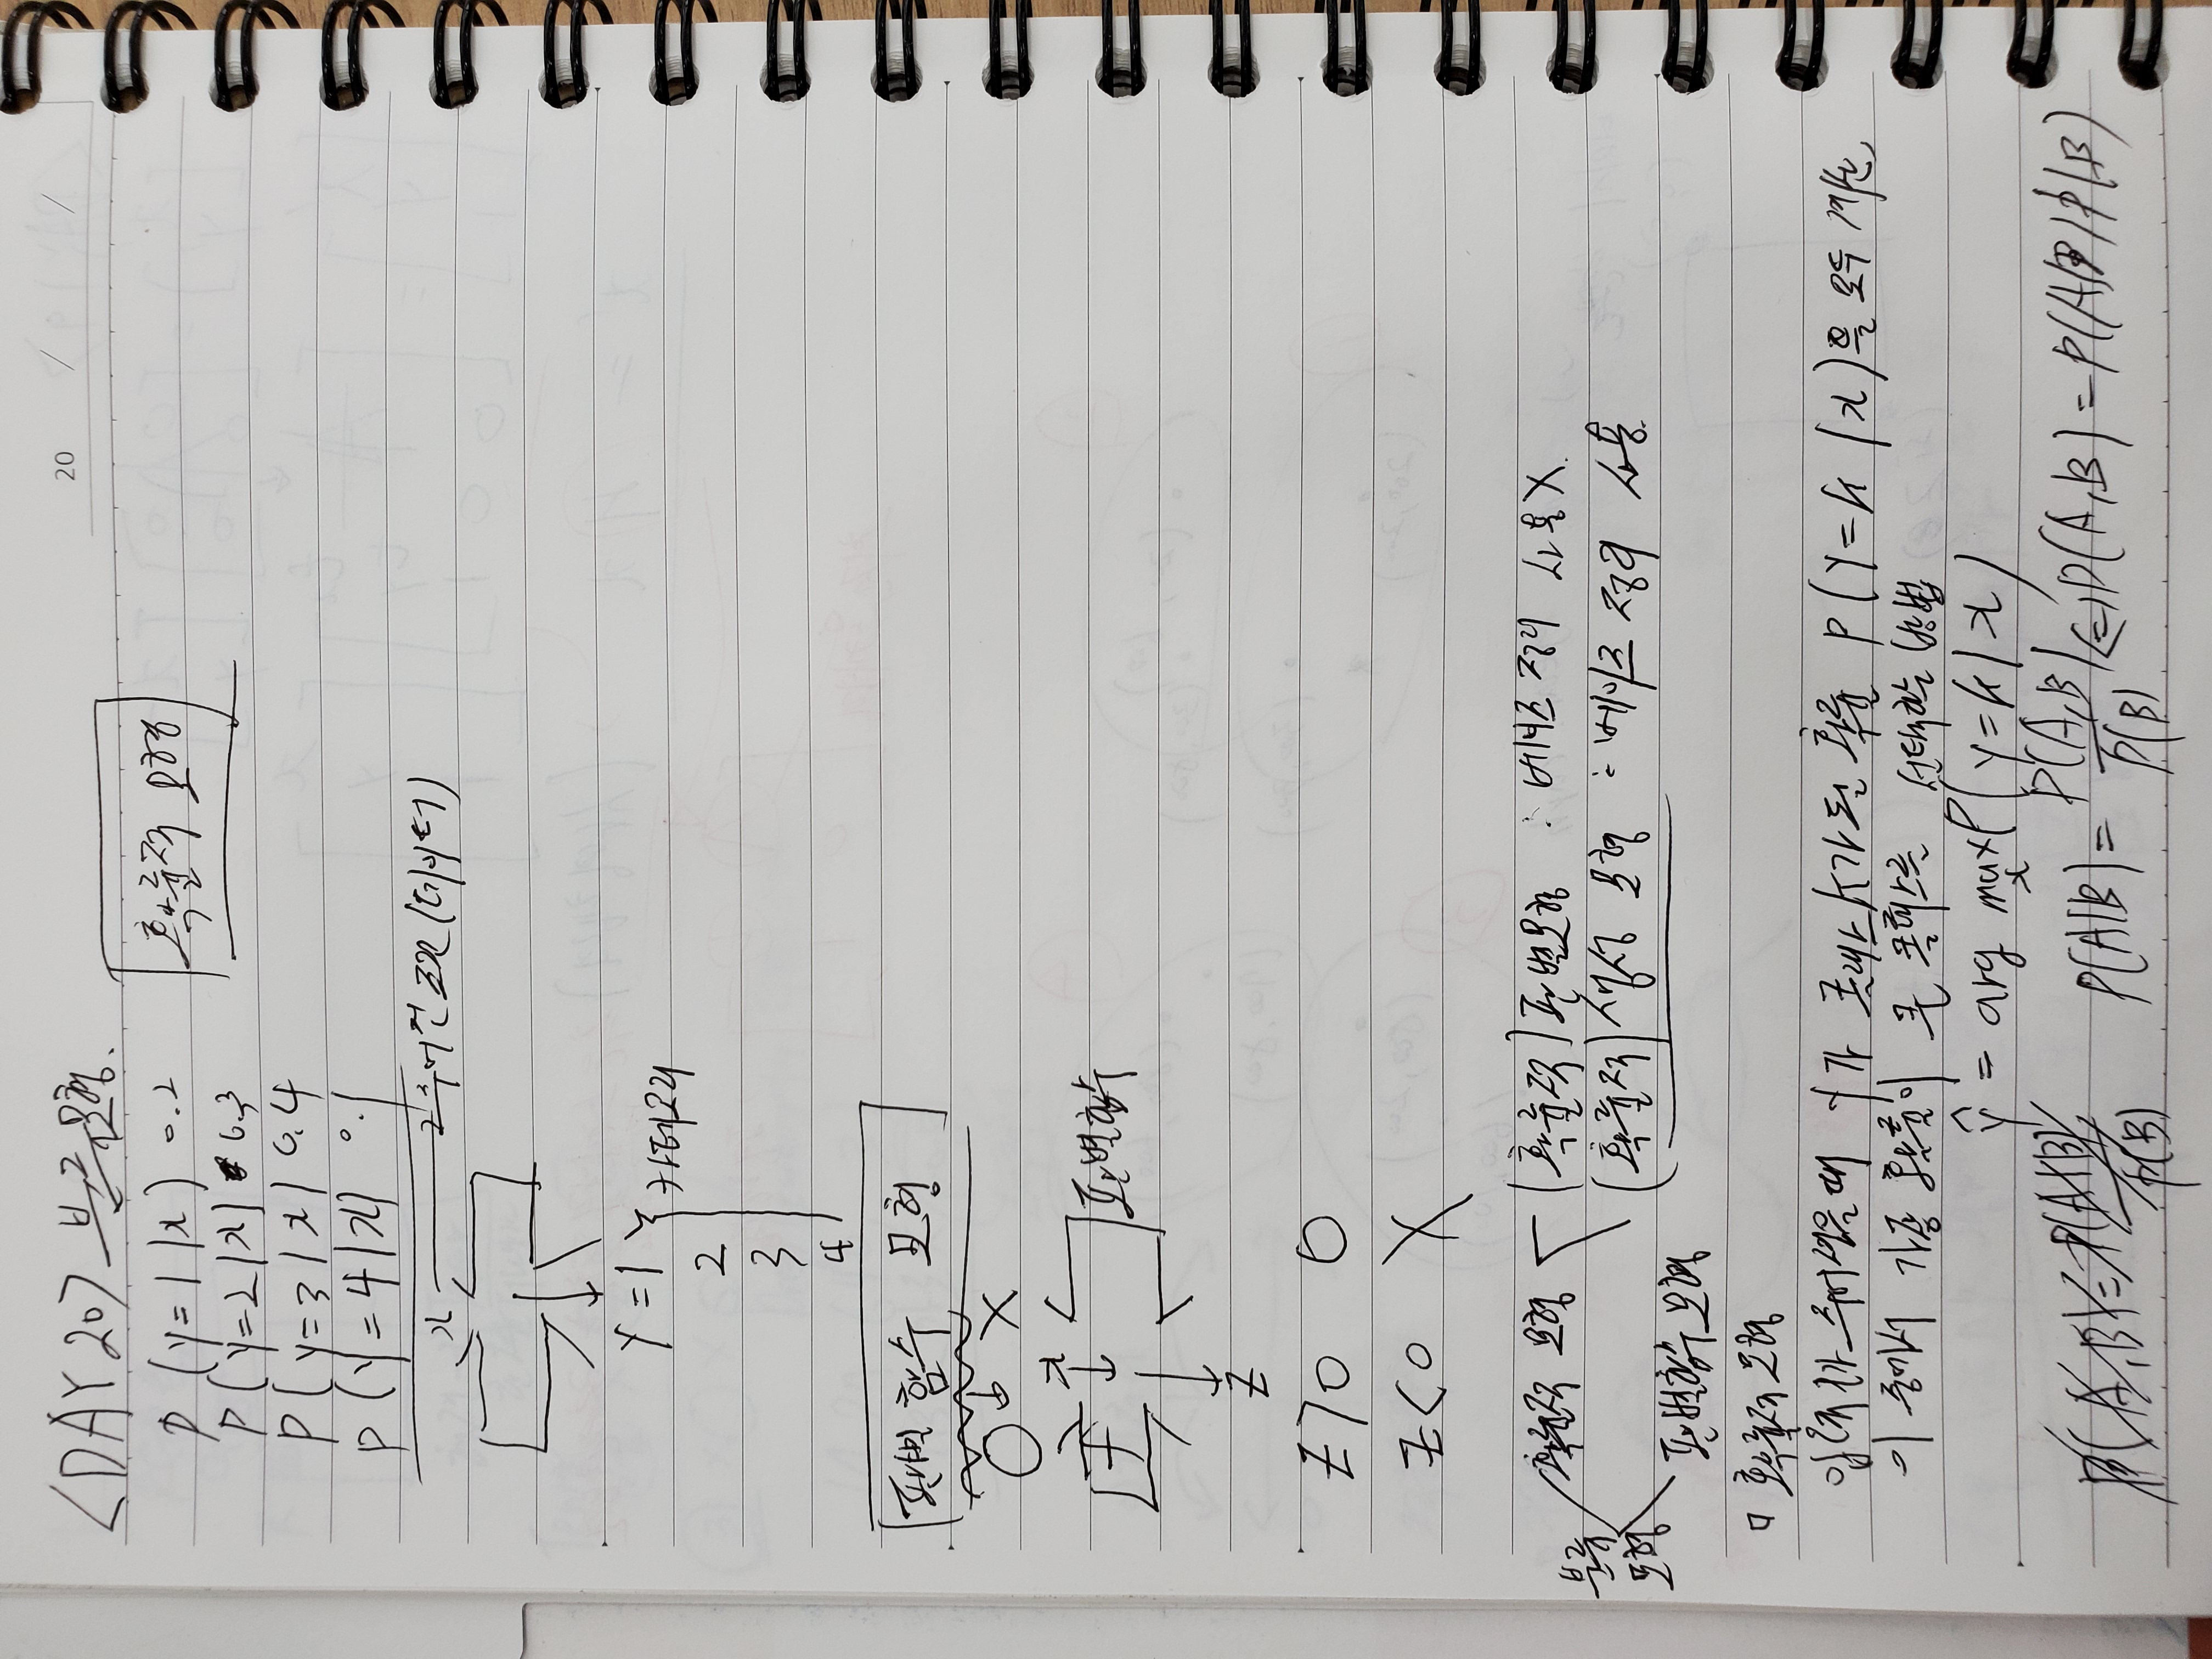 20 / /
<DAY 20> 분류모형.
확률적 모형
P (y=1|x) 0.2
P (y=2|x) 0.3
P (y=3|x) 0.4
P (y=4|x) 0.1
x 주어진 조건 (데이터)
y=1 카테고리
2
3
4
판별 함수 모형
O X
x
f 판별함수
z
z>0 O
z<0 X
분류 모형
확률적 모형
(확률적) 판별모형 : 베이즈 정리 사용X.
(확률적) 생성 모형 : 베이즈 정리 사용.
판별함수모형
□ 확률적 모형
입력 x가 주어졌을때 y가 클래스 k가 될 확률 P(y=k|x)을 모두 계산,
이 중에서 가장 확률이 큰 클래스를 선택하는 방법
ŷ = arg max P(y=k|x)
x
P(A,B)=P(A|B)/P(B) P(A|B)=P(A,B)/P(B) <=> P(A,B)=P(A|B)P(B)